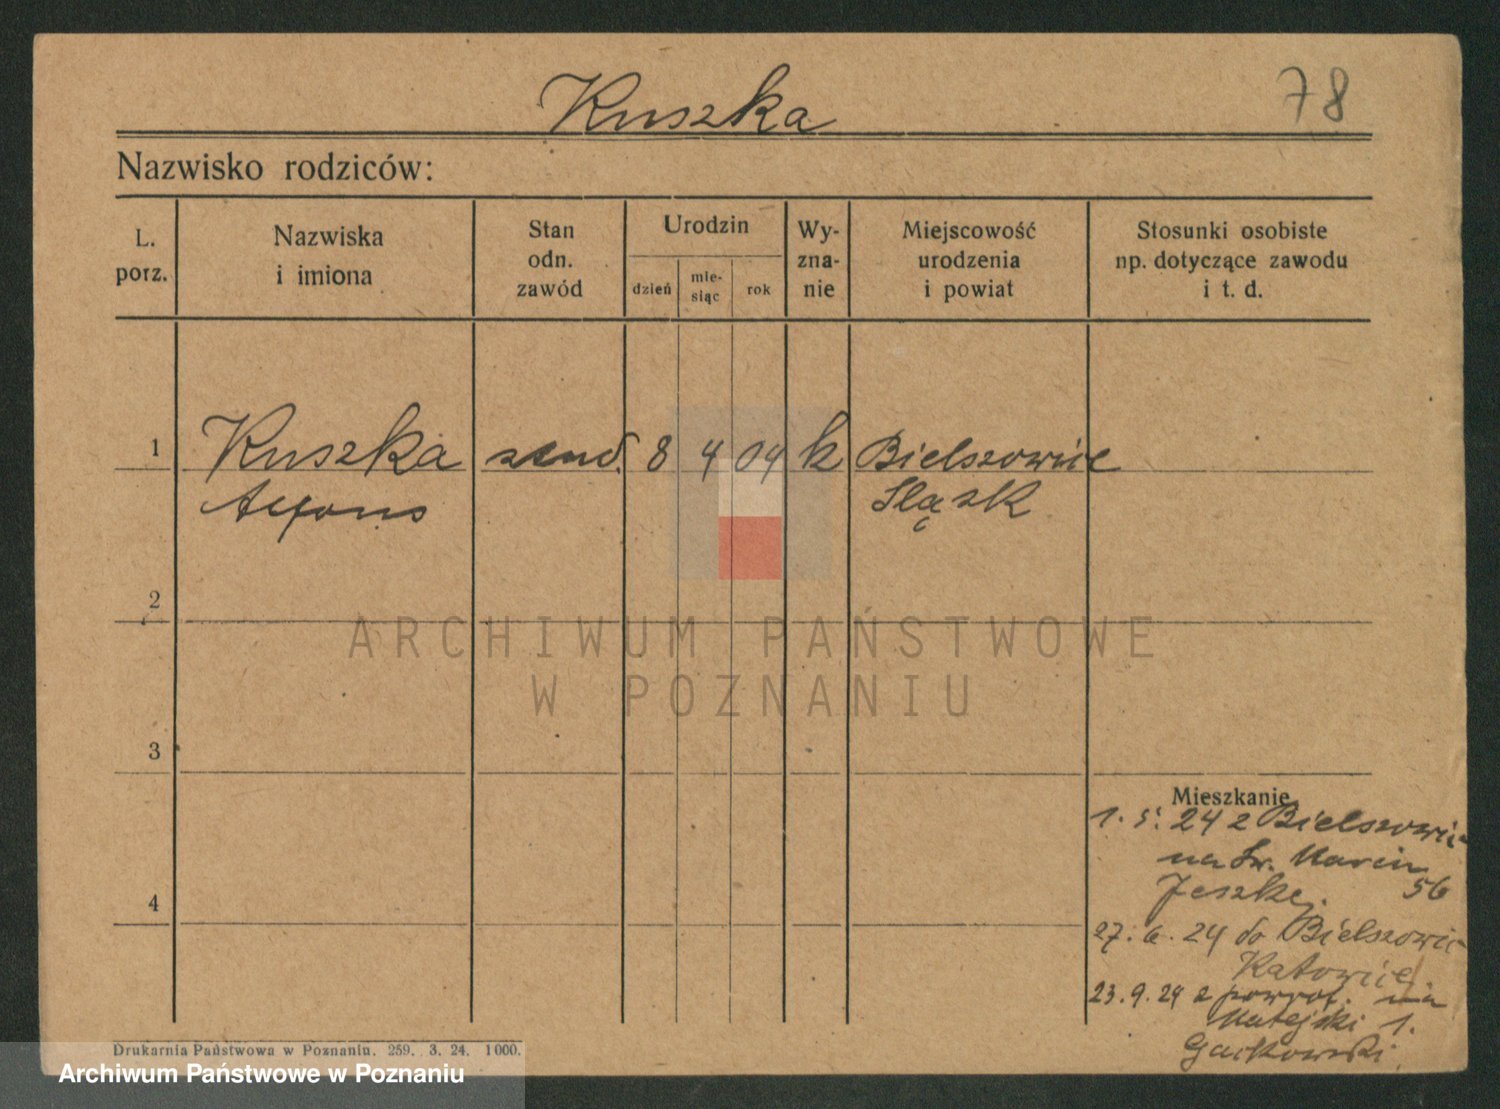 Kuszka
78
Nazwisko rodziców:
L. porz.
Nazwiska i imiona
Stan odn. zawód
Urodzin
dzień
mie-siąc
rok
Wy-zna-nie
Miejscowość urodzenia i powiat
Stosunki osobiste np. dotyczące zawodu i t. d.
1 Kuszka stud. 8 4 04 k Bielszowice
Alfons Śląsk
2
3
4
ARCHIWUM PAŃSTWOWE
W POZNANIU
Mieszkanie
1. 5. 24 z Bielszowic
na Św. Marcin
Jeszke. 56
27. 6. 24 do Bielszowic
Katowice
23. 9. 24 z powrot. na
Matejki 1.
Drukarnia Państwowa w Poznaniu. 259. 3. 24. 1000.
Archiwum Państwowe w Poznaniu